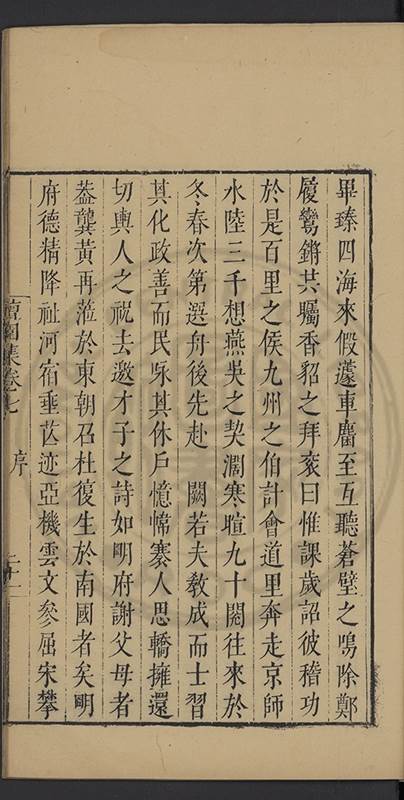 畢臻四海來假蘧車麕至互聽蒼璧之鳴除鄭
履鸞鏘共矚香貂之拜兖曰惟課歲詔彼稽功
於是百里之侯九州之伯計會道里奔走京師
水陸三千想燕吳之契濶寒暄九十閱往來於
冬春次第選舟後先赴　闕若夫敎成而士習
其化政善而民永其休戶憶幨褰人思轎擁還
切輿人之祝去邀才子之詩如明府謝父母者
葢龔黃再蒞於東朝召杜復生於南國者矣明
府德精降祉河宿垂苡迹亞機雲文參屈宋攀
集卷七
序